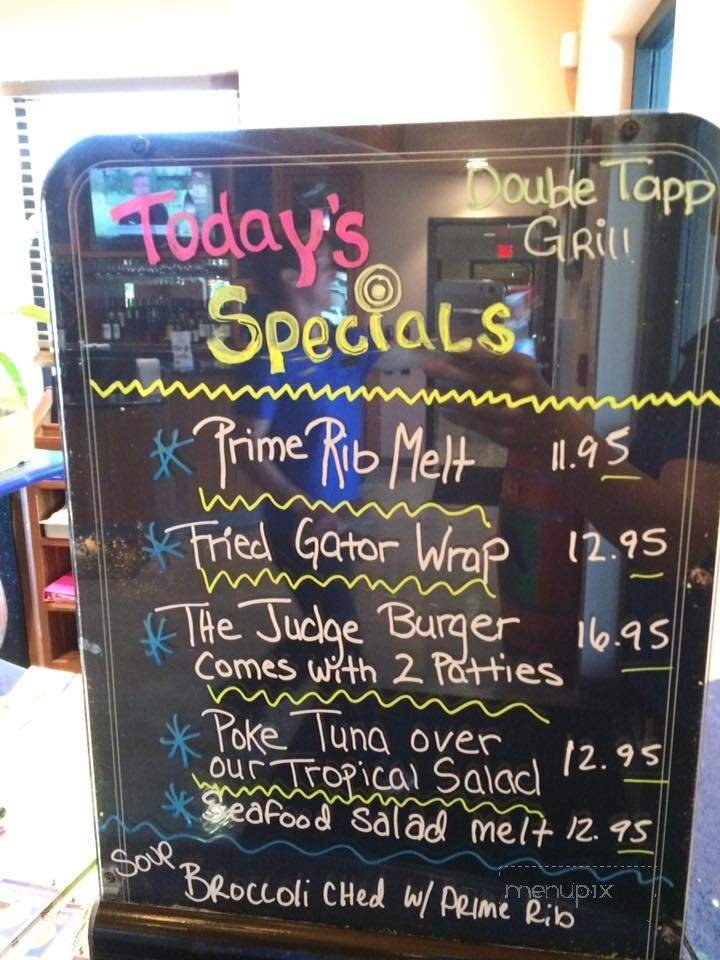 Today's
Specials
Double Tapp
Grill
Prime Rib Melt 11.95
Fried Gator Wrap 12.95
The Judge Burger 16.95
Comes with 2 Patties
Poke Tuna over
our Tropical Salad 12.95
Seafood Salad melt 12.95
Soup
Broccoli Ched w/ Prime Rib
menupix